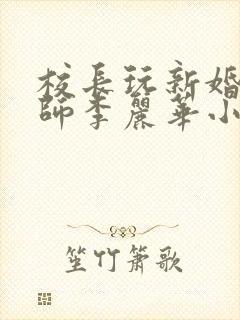 校長玩新婚
師李麗華小
笙竹簫歌